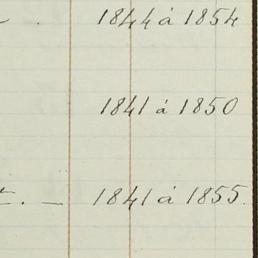 1844 á 1854
1841 á 1850
1841 á 1855.